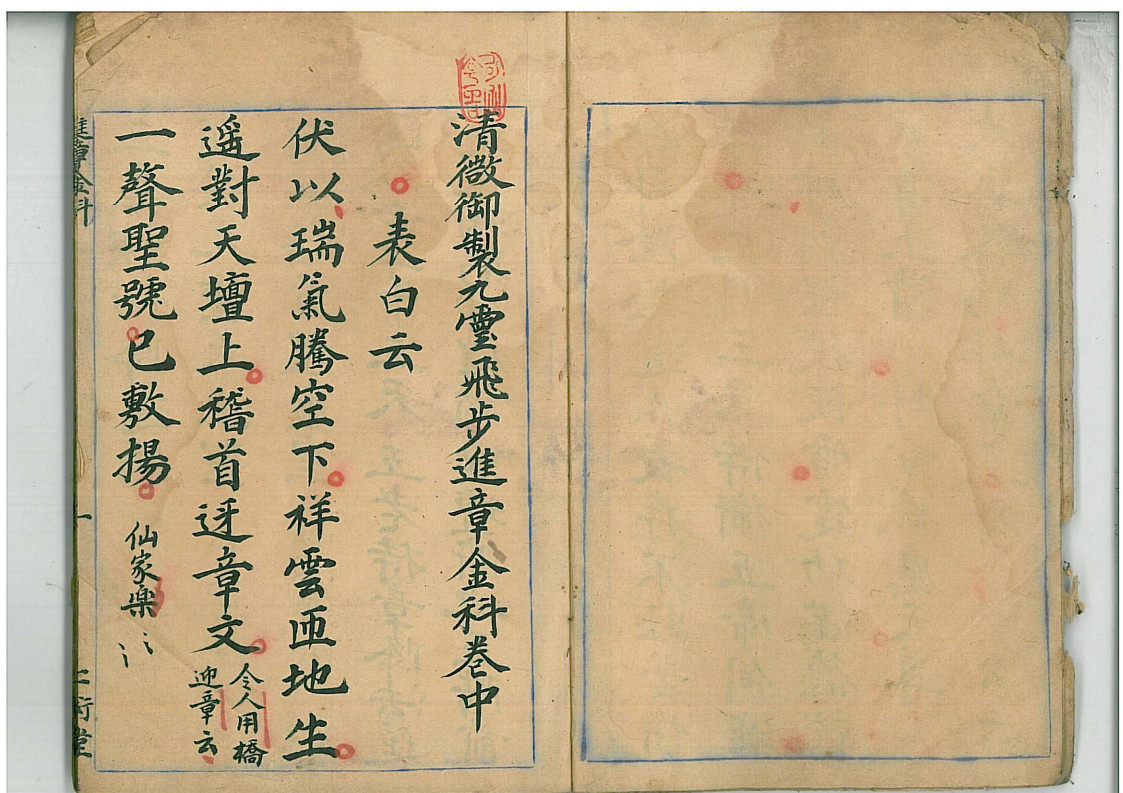 清微御製九靈飛步進章金科卷中
表白云
伏以瑞氣騰空下祥雲匝地生
遥對天壇上稽首迓章文
令人用橋
迎章云
一聲聖號已敷揚
仙家樂
進章金科
一